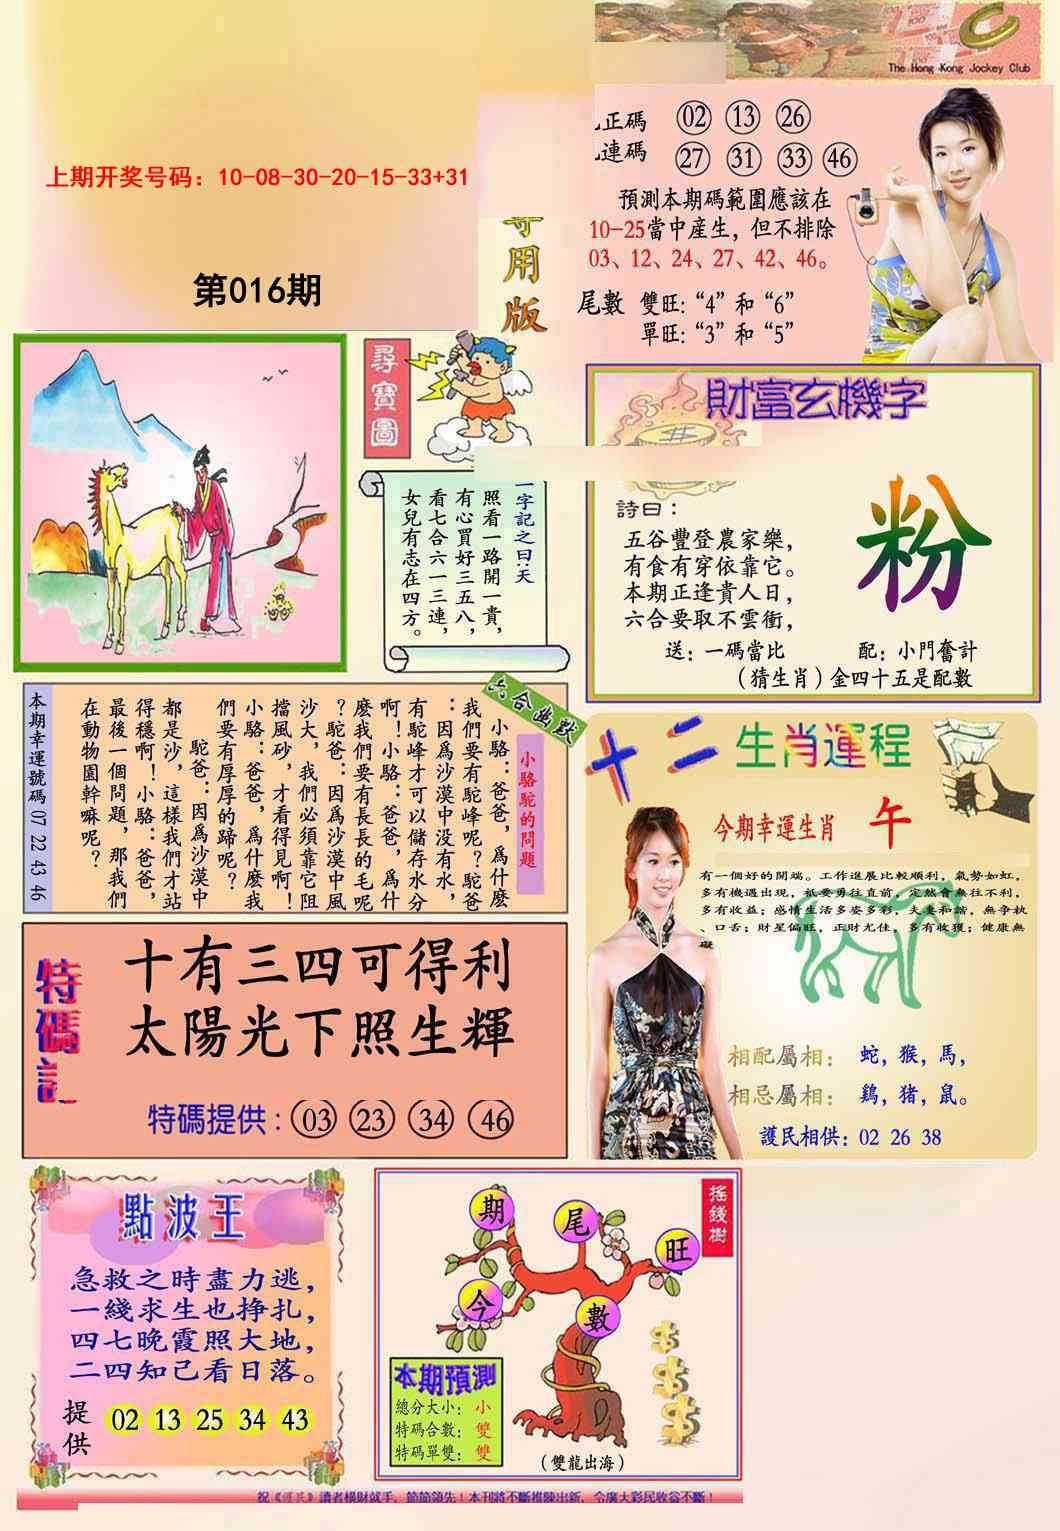 The Hong Kong Jockey Club
正碼 02 13 26
連碼 27 31 33 46
預測本期碼範圍應該在
10-25當中產生，但不排除
03、12、24、27、42、46。
尾數 雙旺:“4”和“6”
單旺:“3”和“5”
上期开奖号码：10-08-30-20-15-33+31
第016期
用版
尋寶圖
一字記之曰:天
照看一路開一貴，
有心買好三五八，
看七合六一三連，
女兒有志在四方。
財富玄機字
詩曰：
五谷豐登農家樂，
有食有穿依靠它。
本期正逢貴人日，
六合要取不雲衝，
粉
送：一碼當比 配：小門奮計
（猜生肖）金四十五是配數
六合幽默
小駱駝的問題
小駱：爸爸，爲什麼
我們要有駝峰呢？駝爸
：因爲沙漠中没有水，
有駝峰才可以儲存水分
啊！小駱：爸爸，爲什
麼我們要有長長的毛呢
？駝爸：因爲沙漠中風
沙大，我們必須靠它阻
擋風砂，才看得見啊！
小駱：爸爸，爲什麼我
們要有厚厚的蹄呢？
駝爸：因爲沙漠中
都是沙，這樣我們才站
得穩啊！小駱：爸爸，
最後一個問題，那我們
在動物園幹嘛呢？
本期幸運號碼 07 22 43 46
十二生肖運程
今期幸運生肖 午
有一個好的開端。工作進展比較順利，氣勢如虹，
多有機遇出現，衹要勇往直前，定然會無往不利，
多有收益；感情生活多姿多彩，夫妻和諧，無爭執
、口舌；財星偏旺，正財尤佳，多有收獲；健康無
礙
相配屬相：蛇，猴，馬，
相忌屬相：鷄，猪，鼠。
護民相供：02 26 38
特碼
十有三四可得利
太陽光下照生輝
特碼提供：03 23 34 46
點波王
急救之時盡力逃，
一綫求生也挣扎，
四七晚霞照大地，
二四知己看日落。
提供 02 13 25 34 43
搖錢樹
今期尾數旺
本期預測
總分大小：小
特碼合數：雙
特碼單雙：雙
（雙龍出海）
讀者橫財就手，節節領先！本刊將不斷推陳出新，令廣大彩民收益不斷！